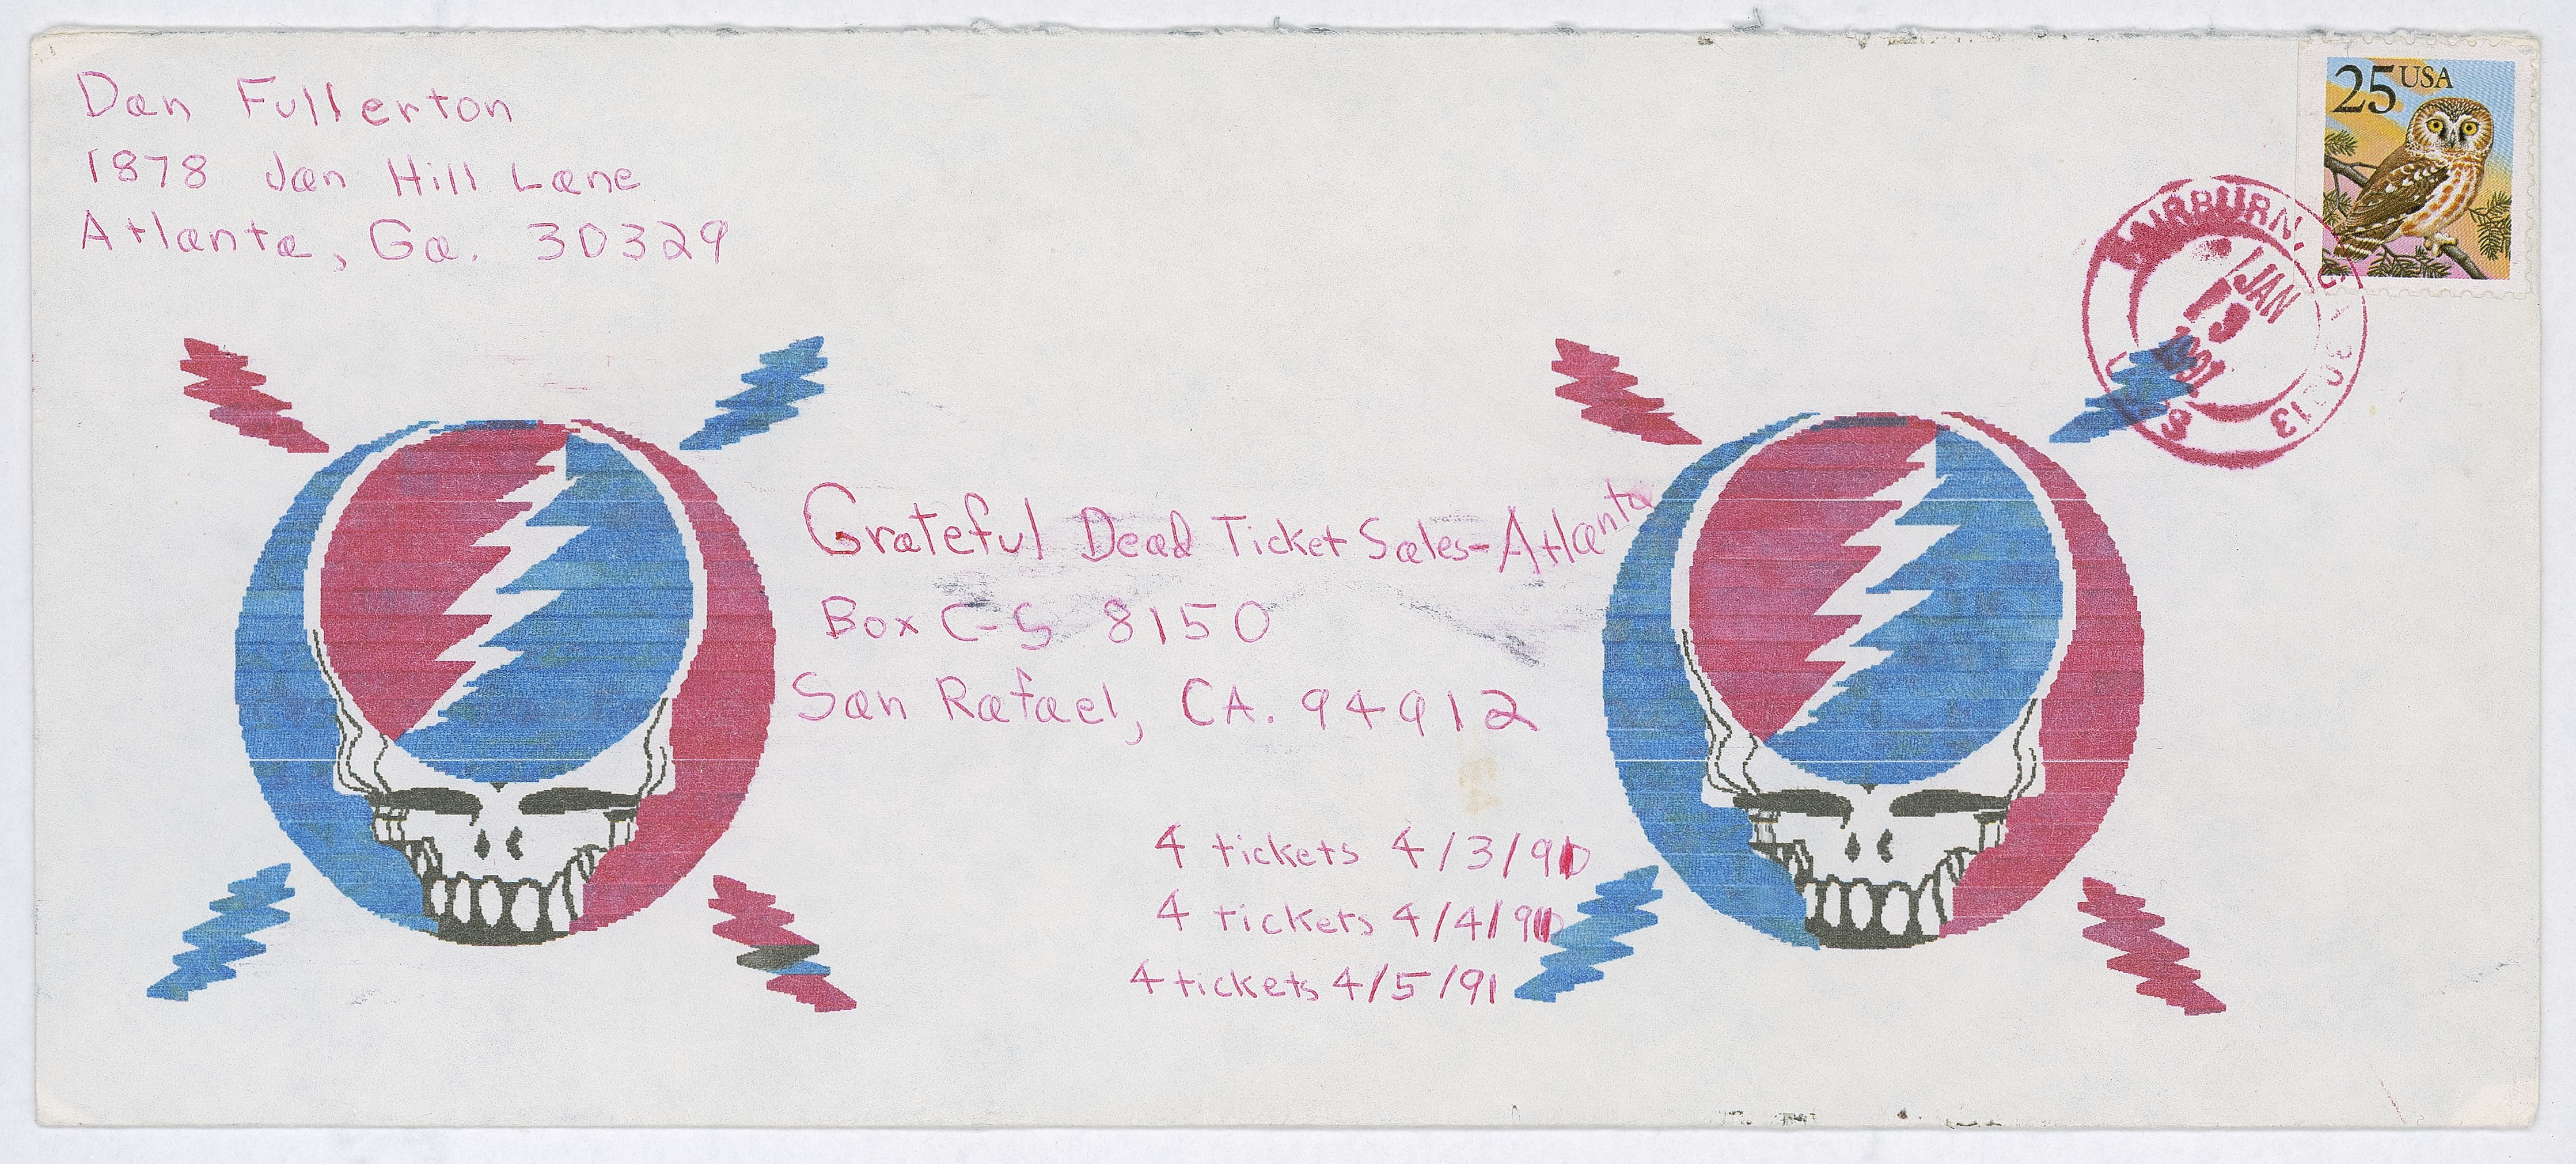 Dan Fullerton
1878 Jan Hill Lane
Atlanta, Ga. 30329
25 USA
FAIRBURN, GA 30213
JAN
19
1991
USPS
Grateful Dead Ticket Sales-Atlanta
Box C-S 8150
San Rafael, CA. 94912
4 tickets 4/3/91
4 tickets 4/4/91
4 tickets 4/5/91